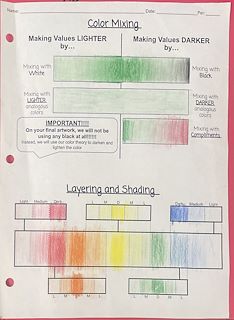 Name: Date: Per:
Color Mixing
Making Values LIGHTER
by…
Making Values DARKER
by…
Mixing with
White
Mixing with
Black
Mixing with
LIGHTER
analogous
colors
Mixing with
DARKER
analogous
colors
IMPORTANT!!!!
On your final artwork, we will not be
using any black at all!!!!!!
Instead, we will use our color theory to darken and
lighten the color.
Mixing with
Compliments
Layering and Shading
Light Medium Dark
L M D M L
Dark Light
L M D M L
L M D M L